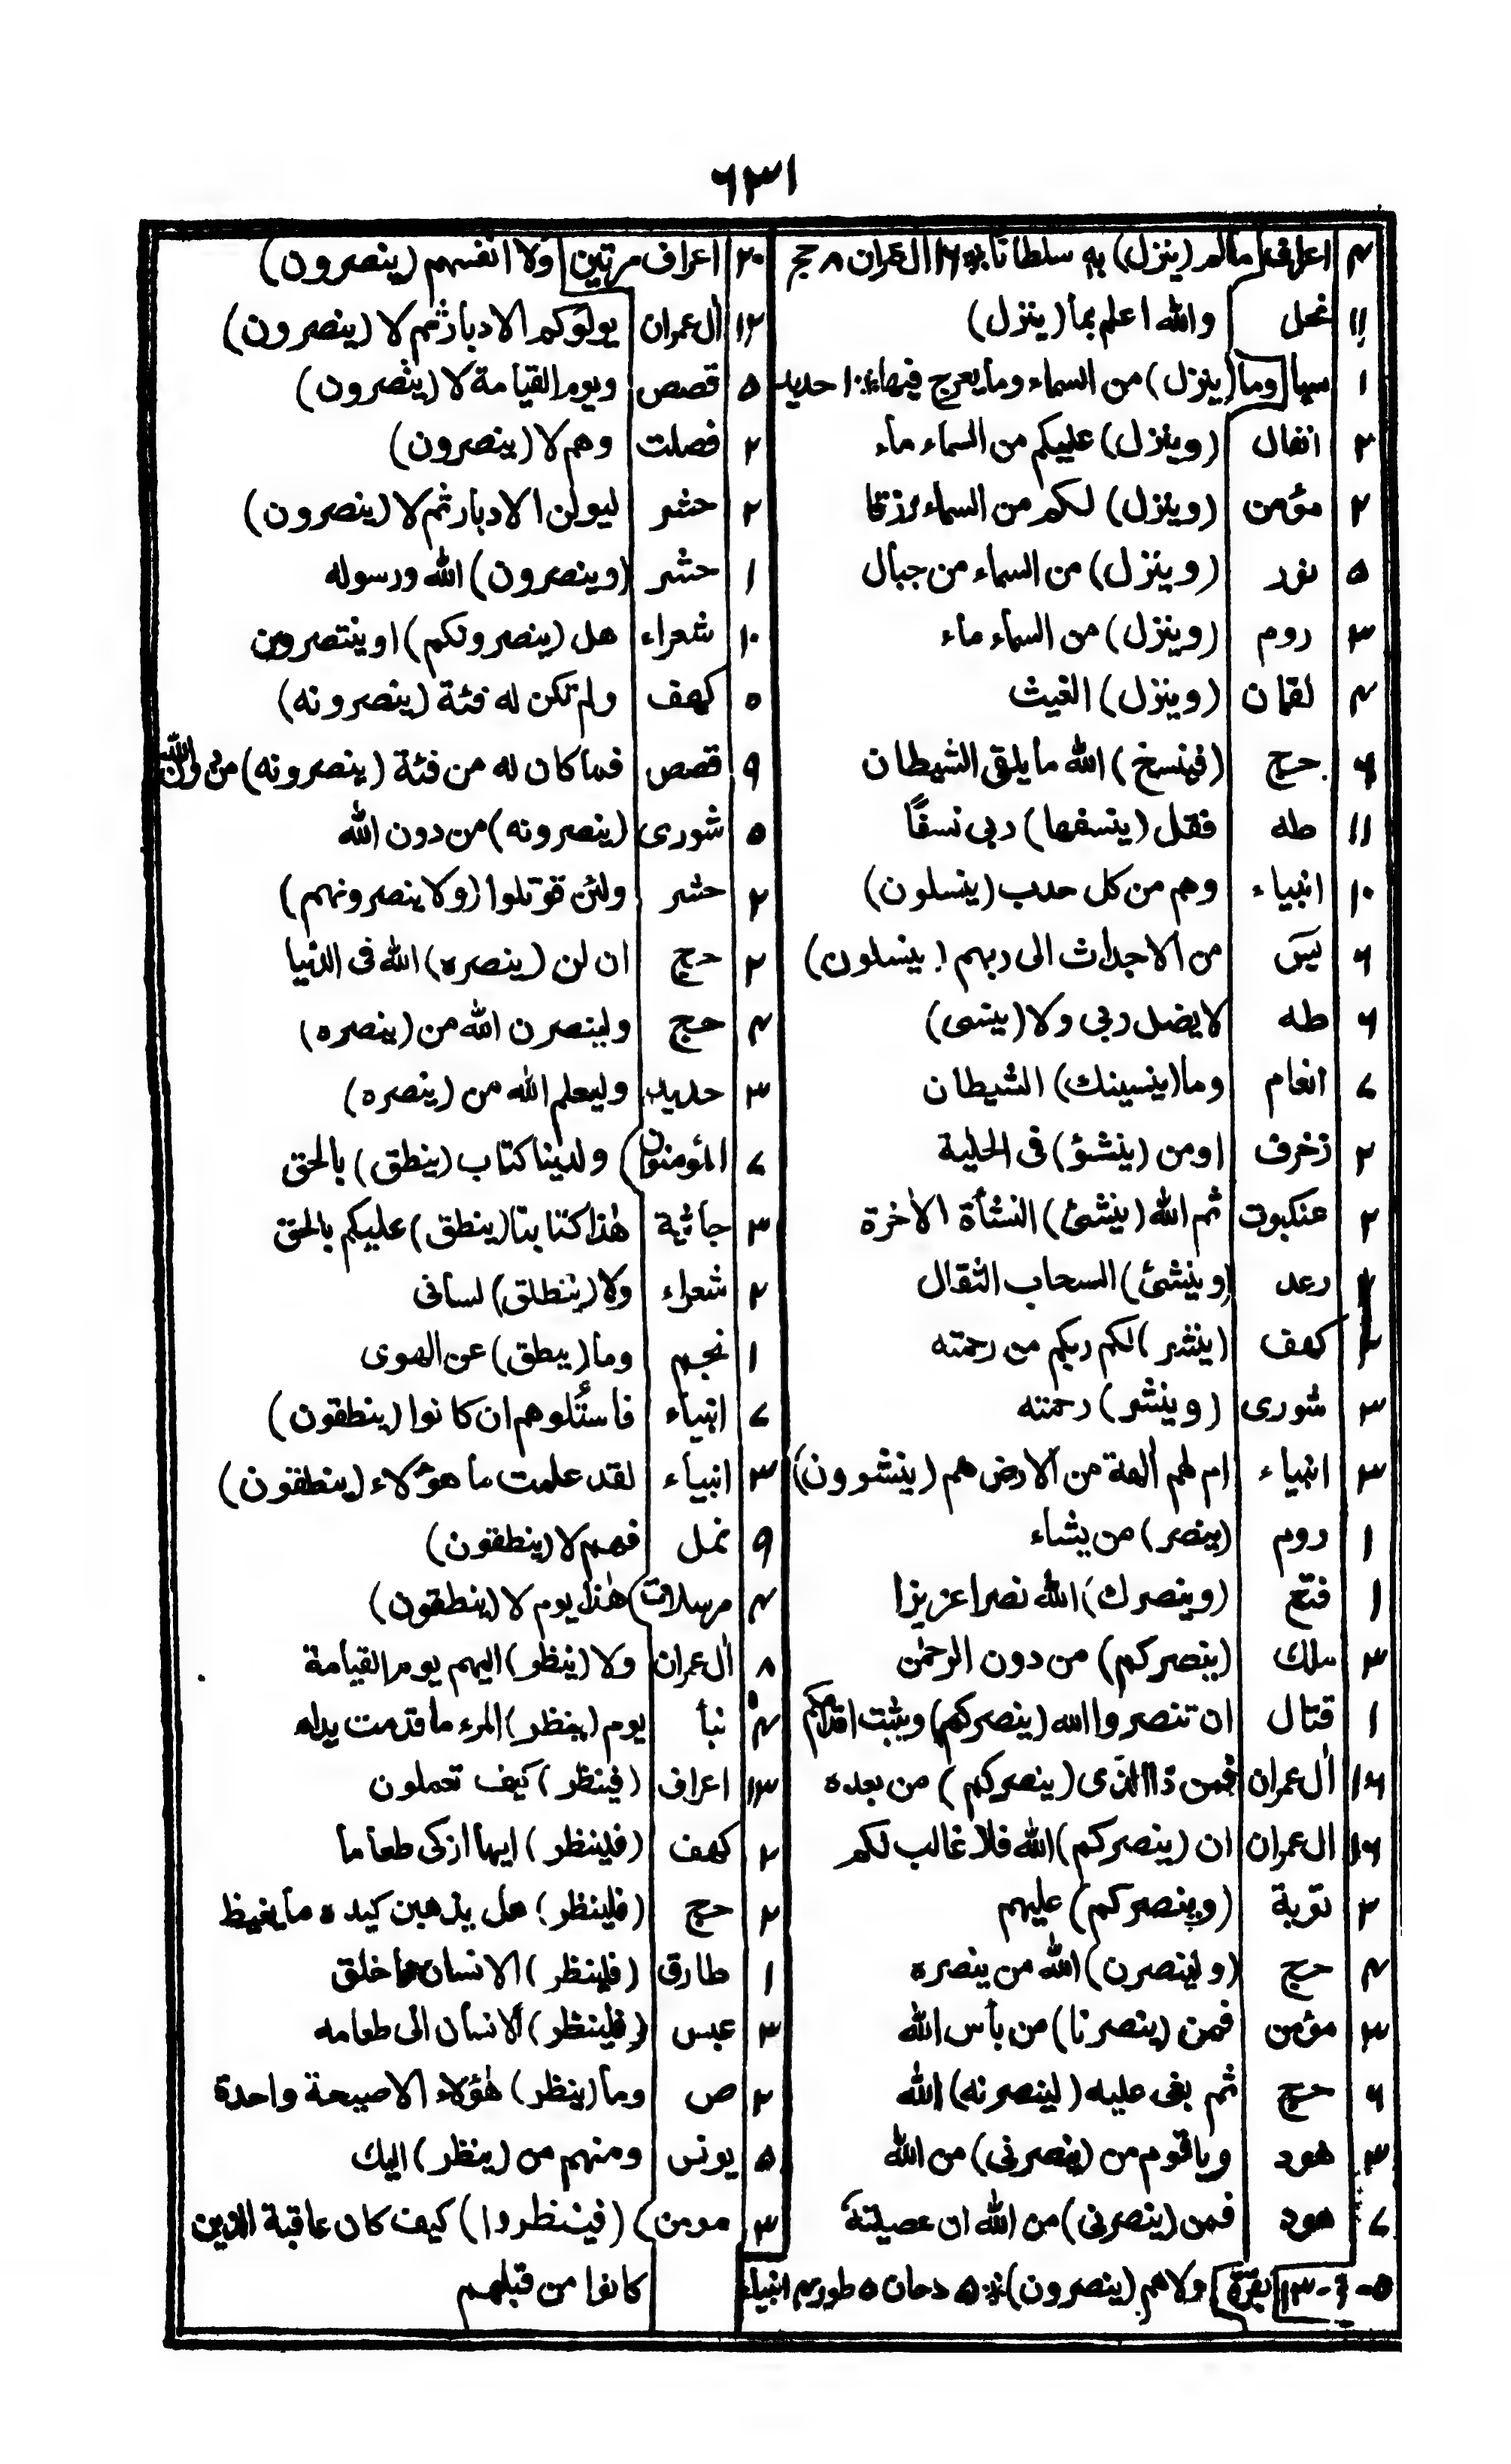 ٦٣١
٤ اعراف مالم (ينزل) به سلطانا ٪ ١٦ ال عمران ٨ حج
١١ نحل والله اعلم بما (ينزل)
١ سبا وما (ينزل) من السماء وما يعرج فيها ٪ ١ حديد
٢ انفال (وينزل) عليكم من السماء ماء
٢ مؤمن (وينزل) لكم من السماء رزقا
٥ نور (وينزل) من السماء من جبال
٣ روم (وينزل) من السماء ماء
٤ لقمان (وينزل) الغيث
٦ حج (فينسخ) الله ما يلقى الشيطان
١١ طه فقل (ينسفها) ربى نسفًا
١٠ انبياء وهم من كل حدب (ينسلون)
٦ يٰسٓ من الاجداث الى ربهم (ينسلون)
٦ طه لا يضل ربى ولا (ينسى)
٧ انعام وما (ينسينك) الشيطان
٢ زخرف اومن (ينشؤ) فى الحلية
٢ عنكبوت ثم الله (ينشئ) النشأة الاخرة
٢ رعد (وينشئ) السحاب الثقال
٢ كهف (ينشر) لكم ربكم من رحمته
٣ شورى (وينشر) رحمته
٣ انبياء ام لهم اٰلهة من الارض هم (ينشرون)
١ روم (ينصر) من يشاء
١ فتح (وينصرك) الله نصرا عزيزا
٣ ملك (ينصركم) من دون الرحمٰن
١ قتال ان تنصروا الله (ينصركم) ويثبت اقدامكم
١٦ اٰل عمران فمن ذا الذى (ينصركم) من بعده
١٦ ال عمران ان (ينصركم) الله فلا غالب لكم
٢ توبة (وينصركم) عليهم
٤ حج (ولينصرن) الله من ينصره
٣ مؤمن فمن (ينصرنا) من بأس الله
٦ حج ثم بغى عليه (لينصرنه) الله
٣ هود وياقوم من (ينصرنى) من الله
٧ هود فمن (ينصرنى) من الله ان عصيته
٥-٦-١٣ بقرة ولاهم (ينصرون) ٪ ٥ دخان ٥ طور ٤ انبياء
٢٠ اعراف مرتين ولا انفسهم (ينصرون)
١٢ اٰل عمران يولوكم الادبار ثم لا (ينصرون)
٥ قصص ويوم القيامة لا (ينصرون)
٢ فصلت وهم لا (ينصرون)
٢ حشر ليولن الادبار ثم لا (ينصرون)
١ حشر (وينصرون) الله ورسوله
١٠ شعراء هل (ينصرونكم) او ينتصرون
٥ كهف ولم تكن له فئة (ينصرونه)
٩ قصص فما كان له من فئة (ينصرونه) من دون الله
٥ شورى (ينصرونه) من دون الله
٢ حشر ولئن قوتلوا (ولا ينصرونهم)
٢ حج ان لن (ينصره) الله فى الدنيا
٤ حج ولينصرن الله من (ينصره)
٣ حديد وليعلم الله من (ينصره)
٧ المؤمنون ولدينا كتاب (ينطق) بالحق
٣ جاثية هٰذا كتابنا (ينطق) عليكم بالحق
٢ شعراء ولا (ينطلق) لسانى
١ نجم وما (ينطق) عن الهوى
٧ انبياء فاسئلوهم ان كانوا (ينطقون)
٣ انبياء لقد علمت ما هؤلاء (ينطقون)
٩ نمل فهم لا (ينطقون)
٤ مرسلات هٰذا يوم لا (ينطقون)
٨ اٰل عمران ولا (ينظر) اليهم يوم القيامة
٤ نبأ يوم (ينظر) المرء ما قدمت يداه
١٣ اعراف (فينظر) كيف تعملون
٢ كهف (فلينظر) ايها ازكى طعاما
٢ حج (فلينظر) هل يذهبن كيده ما يغيظ
١ طارق (فلينظر) الانسان مما خلق
٣ عبس (فلينظر) الانسان الى طعامه
٢ ص وما (ينظر) هٰؤلاء الا صيحة واحدة
٥ يونس ومنهم من (ينظر) اليك
٣ مومن (فينظروا) كيف كان عاقبة الذين
كانوا من قبلهم